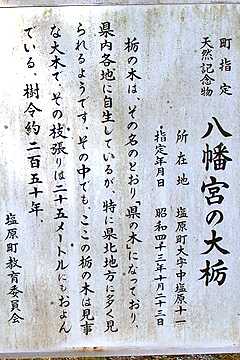 町指定
天然記念物
八幡宮の大栃
所在地 塩原町大字中塩原十一
指定年月日 昭和四十三年十月二十三日
栃の木は、その名のとおり「県の木になっており、
県内各地に自生しているが、特に県北地方に多く見
られるようです。その中でも、ここの栃の木は見事
な大木で、その枝張りは二十五メートルにもおよん
でいる。樹令約二百五十年。
塩原町教育委員会